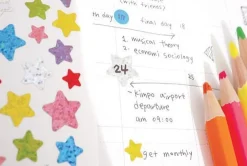 (with friends)
monday 10 final day 18
1. musical theory
2. economi sociology
24
25
kimpo airport
departure
am 09:00
get monthly